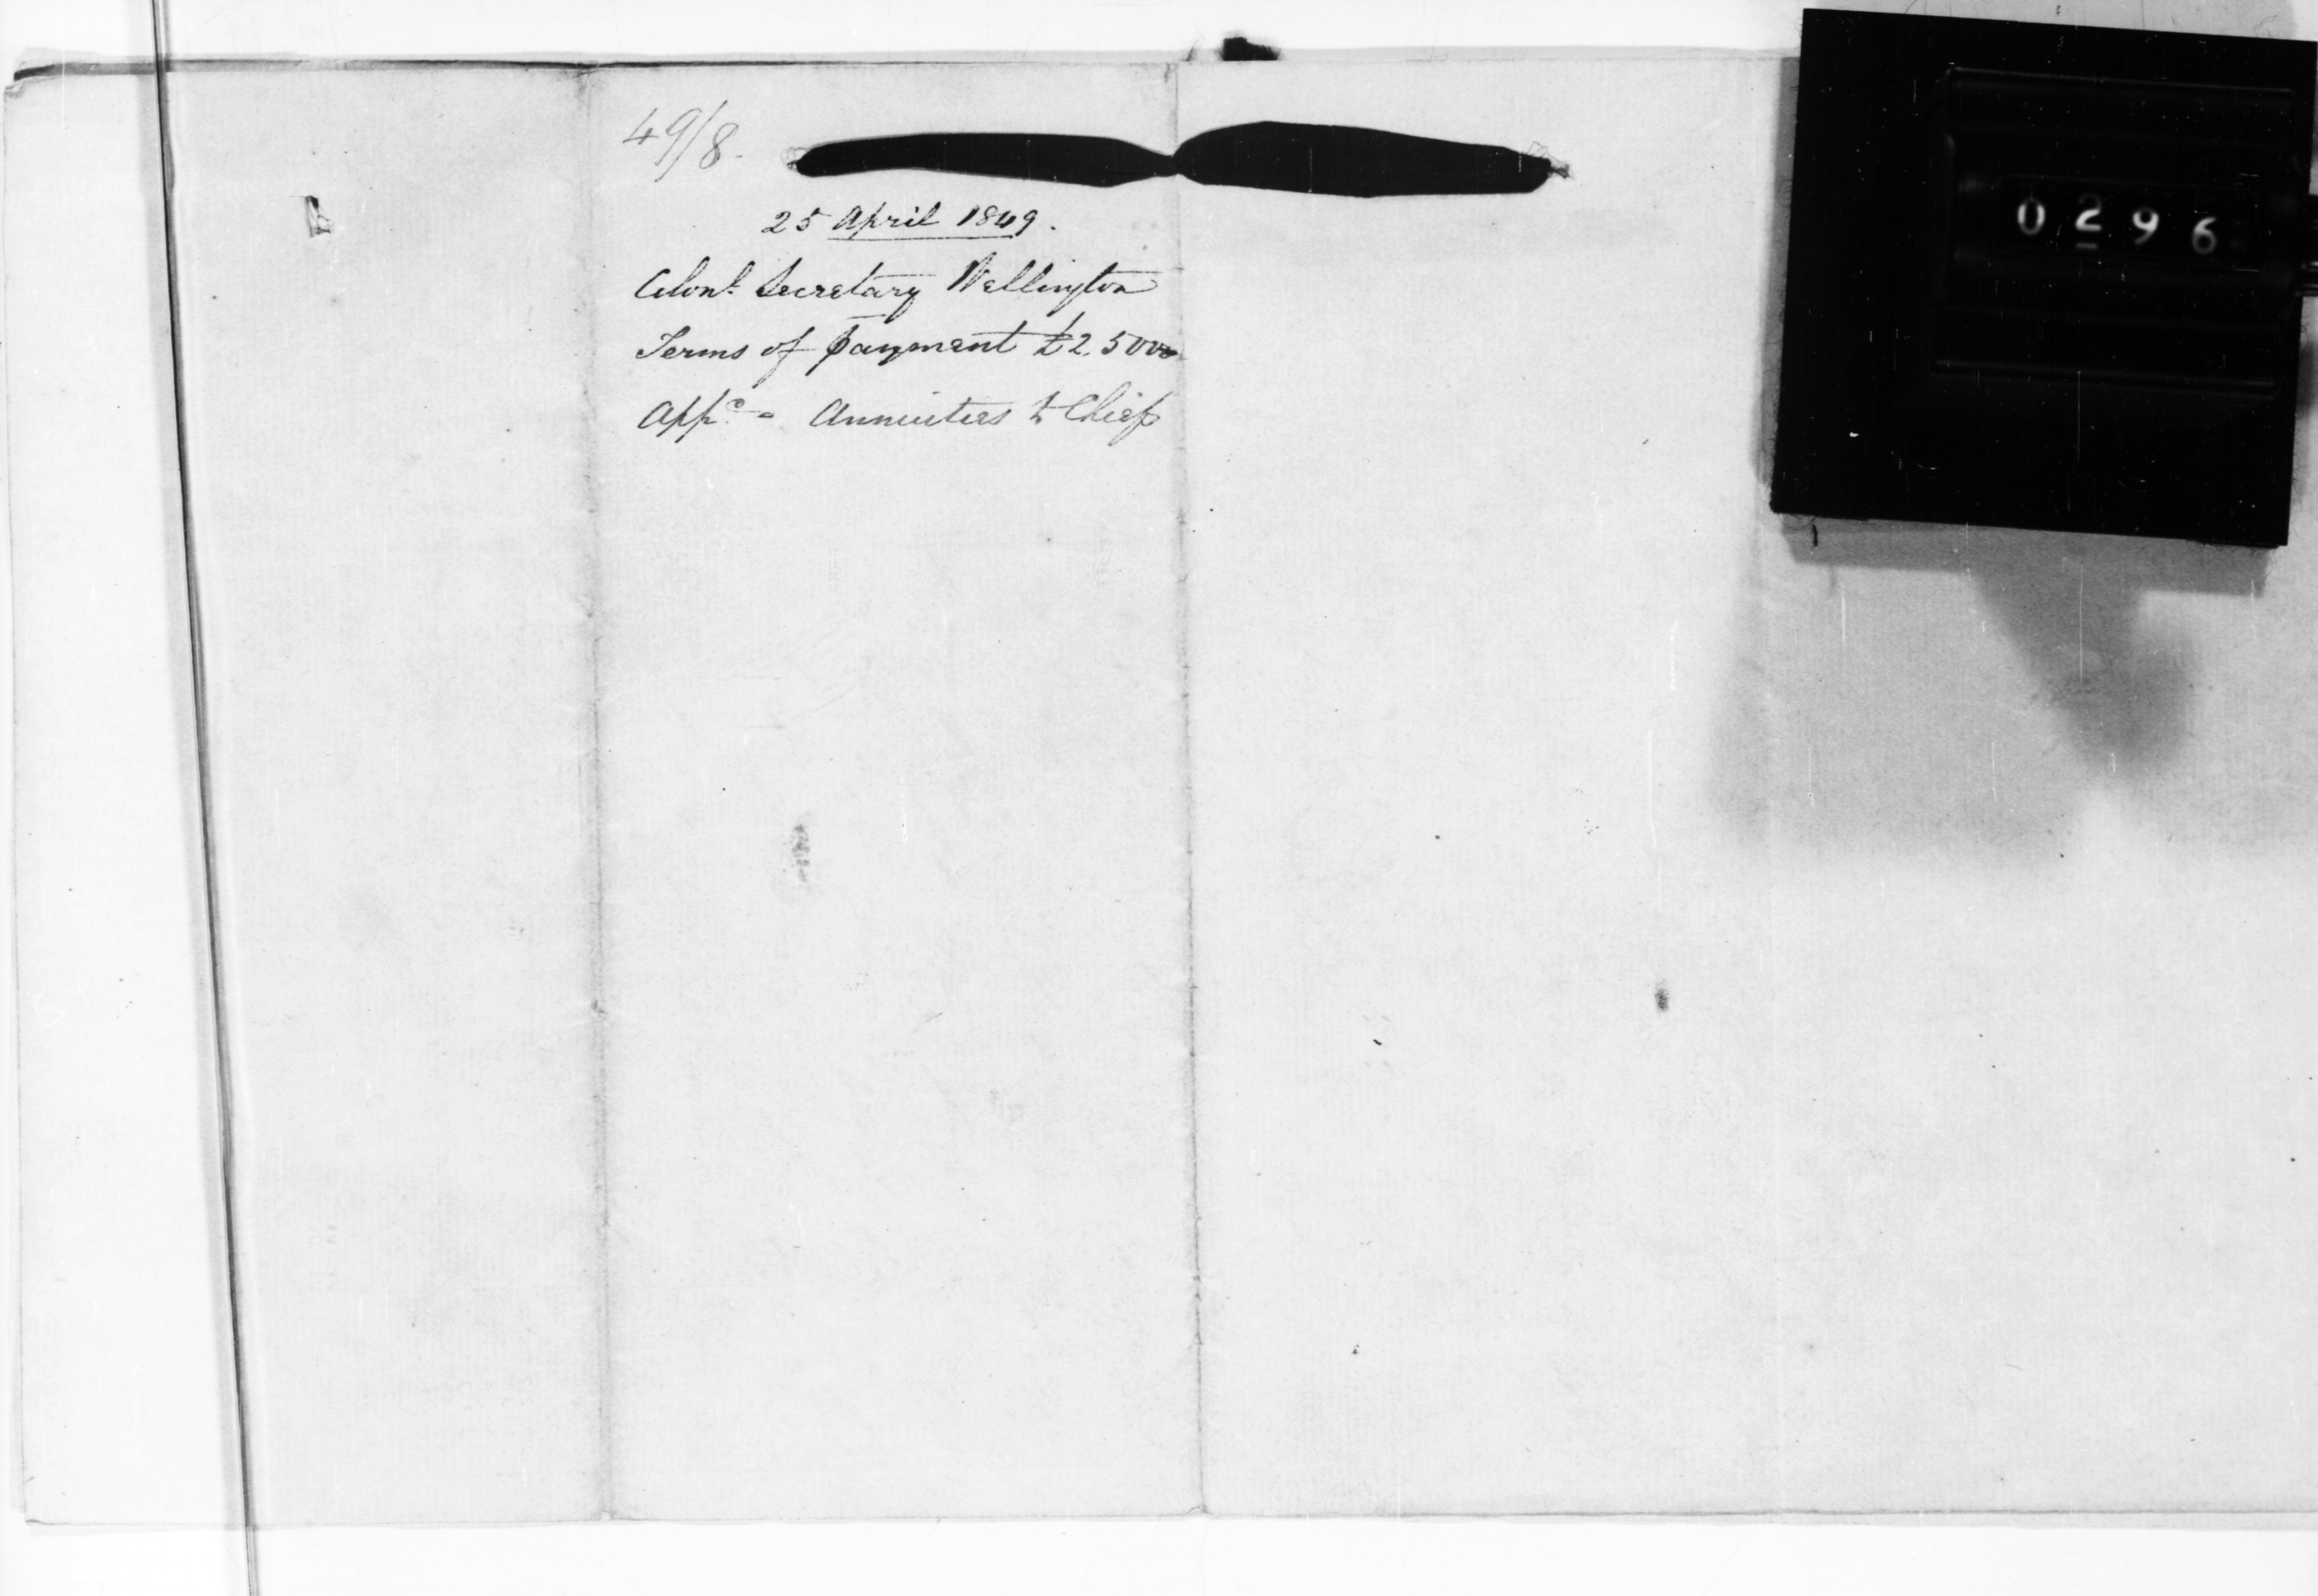 49/8.
25 April 1849.
Colonl. Secretary Wellington
Terms of payment £2.500
Appe - Annuities to Chiefs
0296